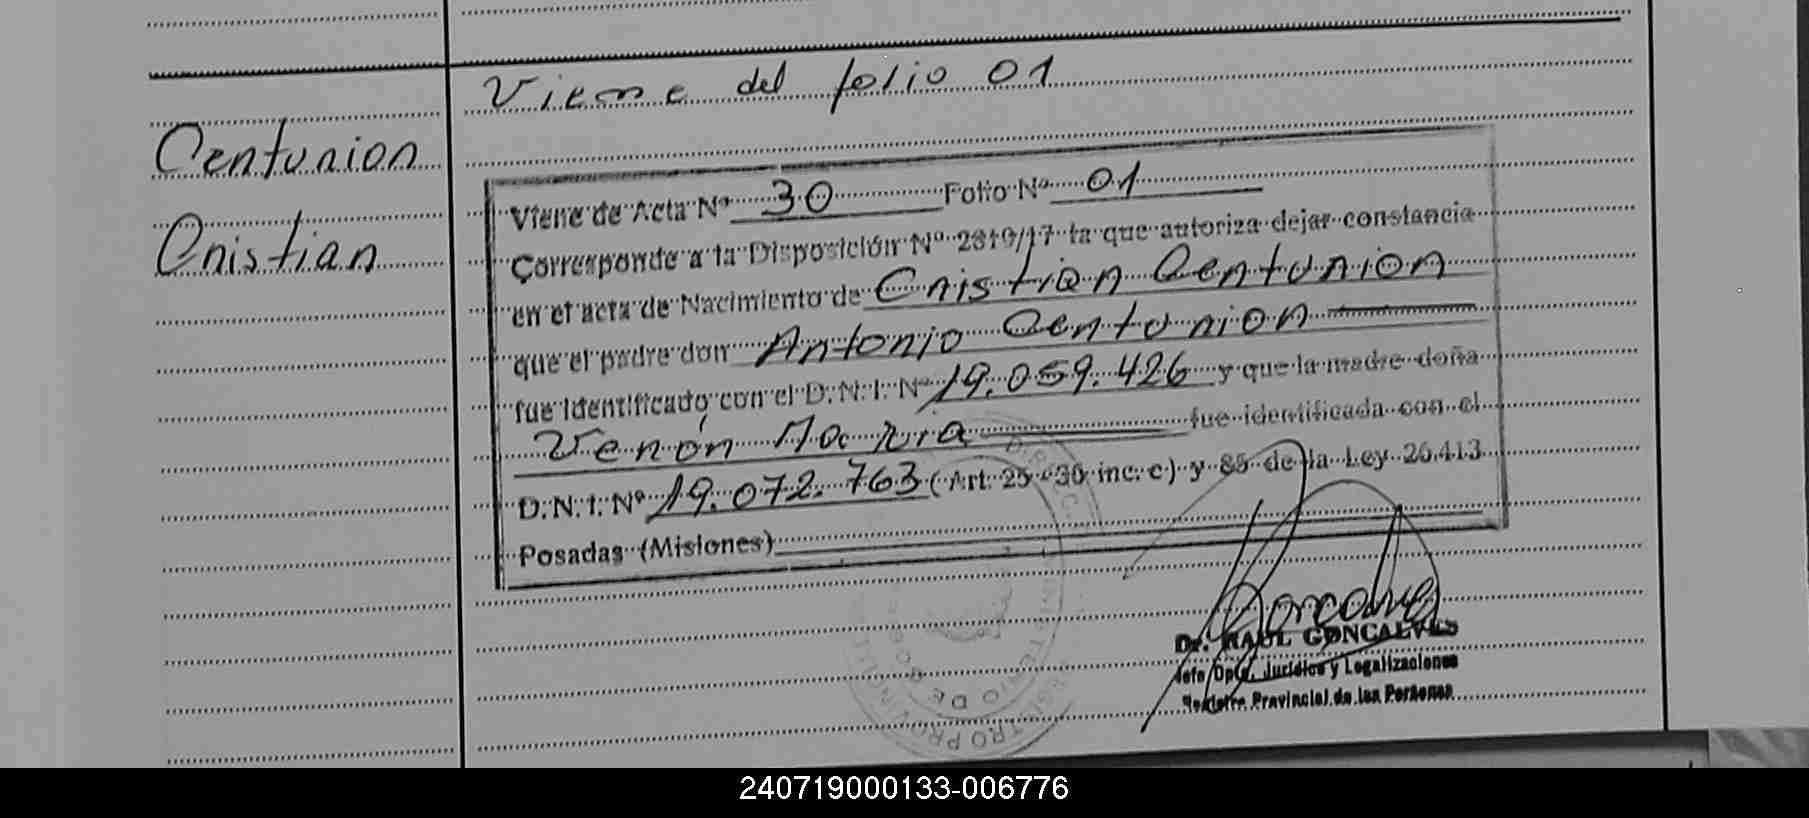 Viene del folio 01
Centurion
Cristian
Viene de Acta Nº 30 Folio Nº 01
Corresponde a la Disposición Nº 2819/17 la que autoriza dejar constancia
en el acta de Nacimiento de Cristian Centurion
que el padre don Antonio Centurion
fue identificado con el D.N.I. Nº 19.059.426 y que la madre doña
Verón María fue identificada con el
D.N.I. Nº 19.072.763 (Art. 25 inc. c) y 85 de la Ley 26.413
Posadas (Misiones)
Dr. RAUL GONCALVES
Jefe Dpto. Jurídico y Legalizaciones
Registro Provincial de las Personas
REGISTRO PROVINCIAL
MINISTERIO DE GO
240719000133-006776